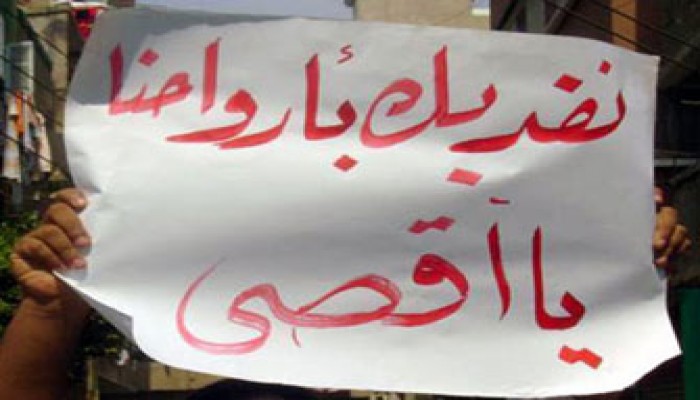 نفديك بأرواحنا
يا أقصى